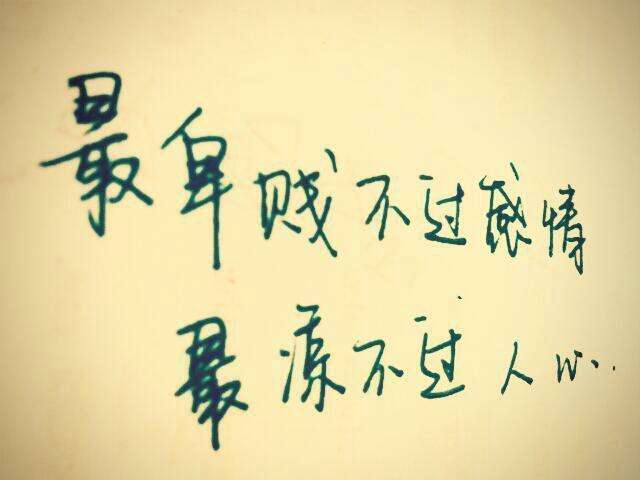 最卑贱不过感情
最凉不过人心.